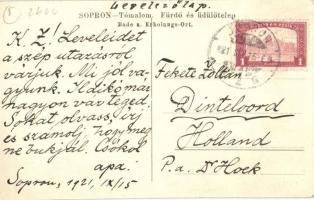 2600
Levelezőlap.
SOPRON—Tómalom. Fürdő és üdülőtelep
Bade u. Erholungs-Ort.
K. Z! Leveleidet
a szép utazásról
várjuk. Mi jól va-
gyunk. Ildikó már
nagyon vár téged.
Sokat olvass, írj
és számolj, hogy meg
ne bukjál. Csókol
apa.
Sopron, 1921, IX/15
Fekete Zoltán
Dinteloord
Holland
P. a. Dr Hoek
1